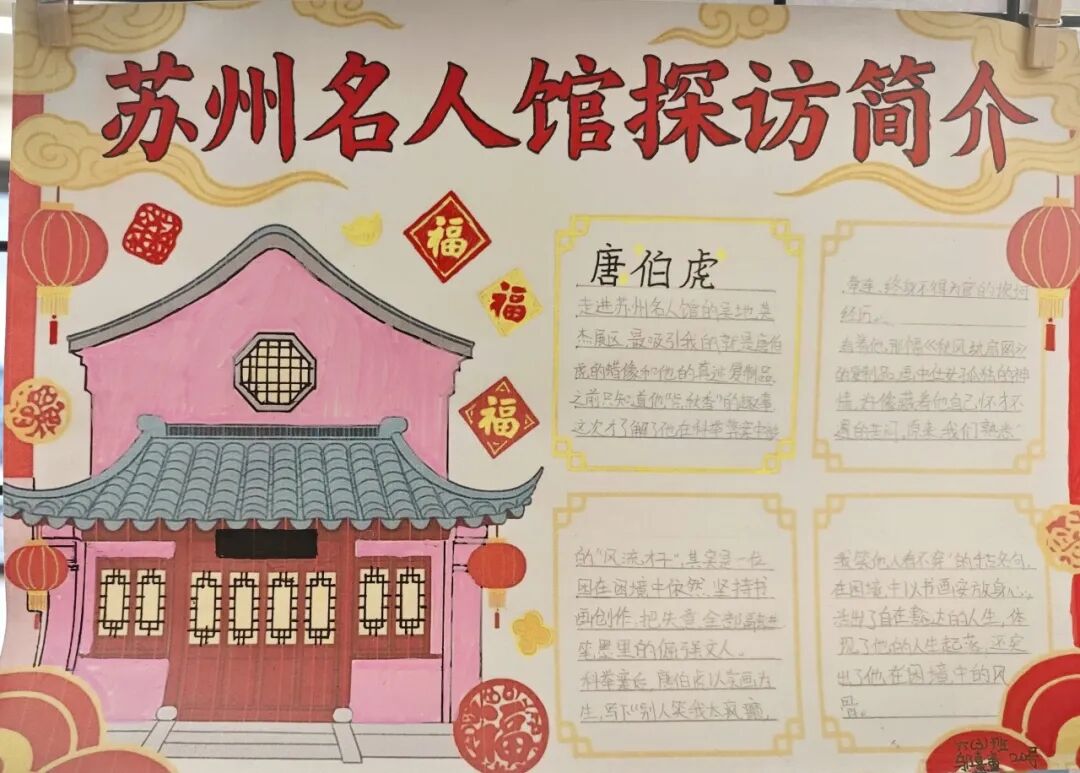 苏州名人馆探访简介
福
福
福
福
唐伯虎
走进苏州名人馆的吴地英
杰展区，最吸引我的就是唐伯
虎的蜡像和他的真迹复制品，
之前只知道他“点秋香”的趣事
这次才了解了他在科举弊案中被
牵连，终身不得为官的坎坷
经历。
看着他那幅《秋风纨扇图》
的复制品，画中仕女孤独的神
情，好像藏着他自己怀才不
遇的苦闷，原来，我们熟悉
的“风流才子”，其实是一位
困在困境中依然坚持书
画创作，把失意全部融进
笔墨里的倔强文人。
科举案后，唐伯虎以卖画为
生，写下“别人笑我太疯癫，
我笑他人看不穿”的千古名句，
在困境中以书画安放身心，
活出了自在豁达的人生，体
现了他的人生起落，还突
出了他在困境中的风
骨。
六(3)班
20号